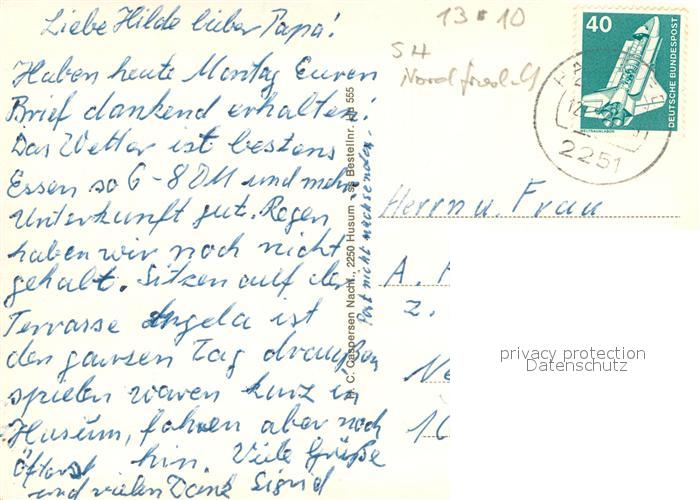 Liebe Hilde lieber Papa!
Haben heute Montag Euren
Brief dankend erhalten!
Das Wetter ist bestens
Essen so 6-8 DM und mehr
Unterkunft gut. Regen
haben wir noch nicht
gehabt. Sitzen auf der
Terrasse Angela ist
den ganzen Tag draußen
spielen waren kurz in
Husum, fahren aber noch
öfters hin. Viele Grüße
und vielen Dank Sigrid
C. Caspersen Nachf., 2250 Husum
Bestellnr. 555
Post nicht nachsenden.
13 10
SH
40
DEUTSCHE BUNDESPOST
WELTRAUMLABOR
2251
Herrn u. Frau
A.
z.
Ne
privacy protection
Datenschutz